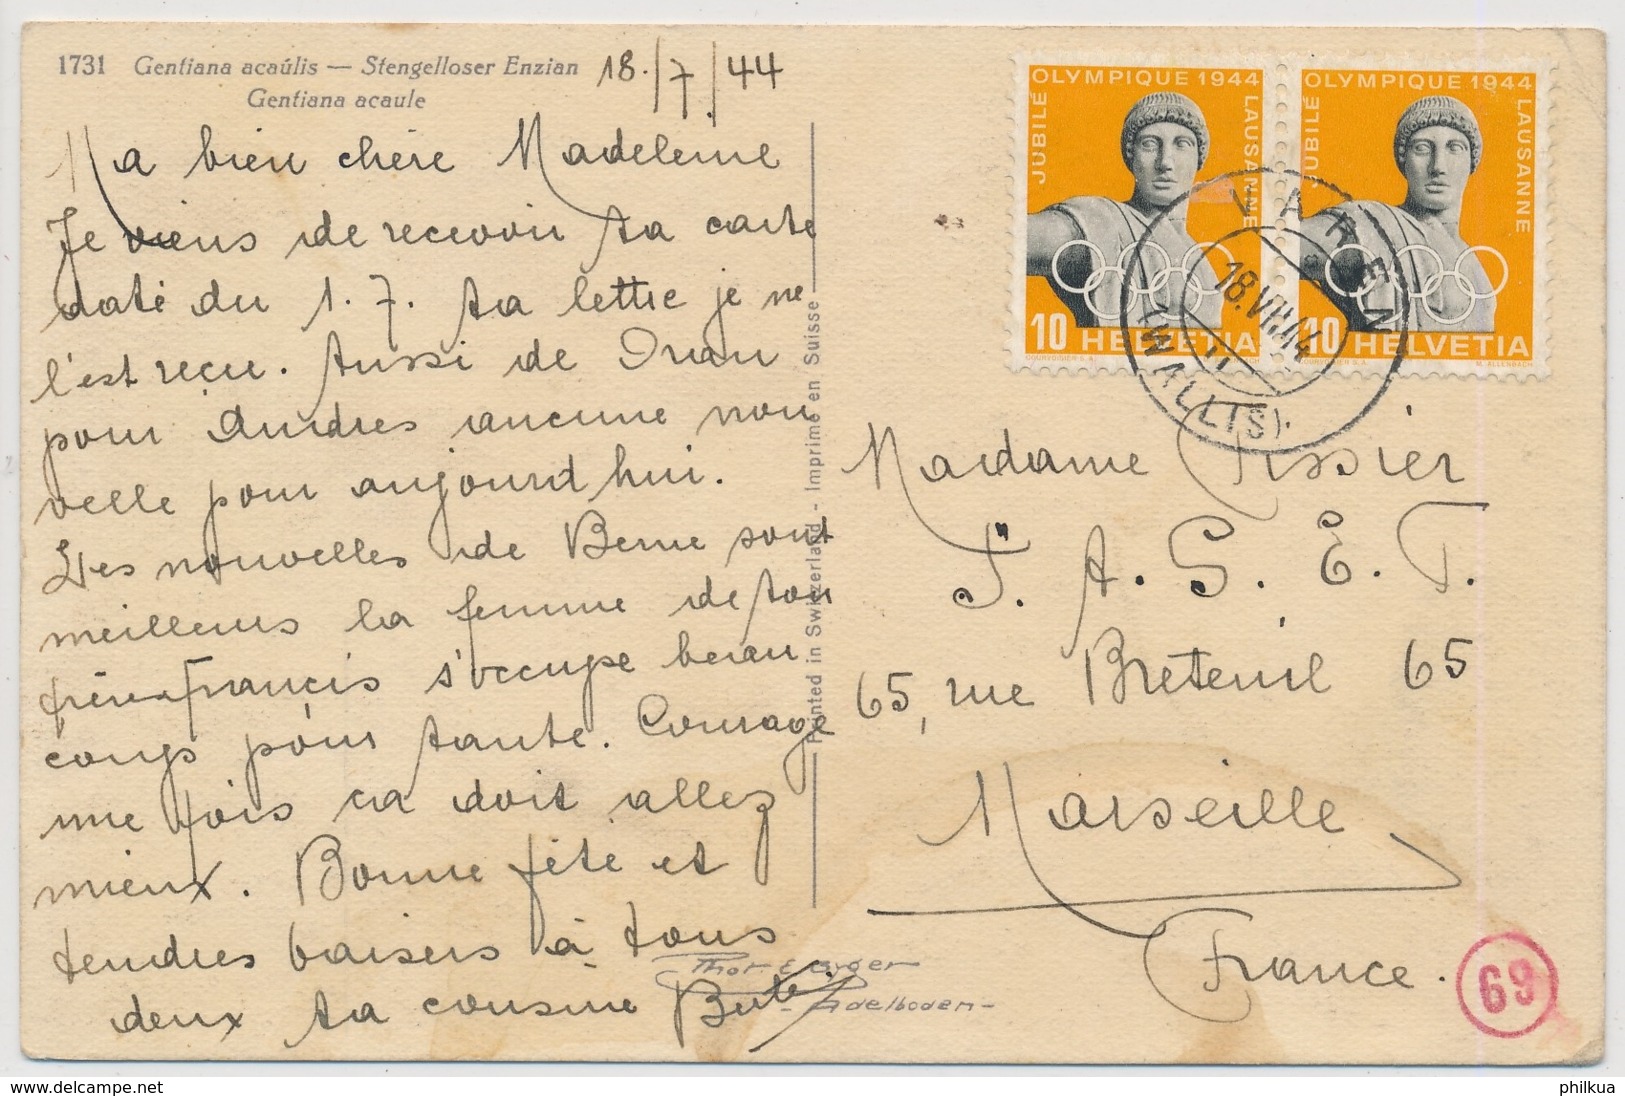 1731 Gentiana acaúlis — Stengelloser Enzian
Gentiana acaule
18./7/44
Ma bien chère Madeleine
Je viens de recevoir ta carte
daté du 1.7. ta lettre je ne
l'est reçu. Aussi de
pour Andres aucune nou
velle pour aujourd'hui.
Les nouvelles de Berne sont
meilleurs la femme de ton
frère François s'occupe beau
coup pour tante. Courage
une fois ca doit allez
mieux. Bonne fête et
tendres baisers à tous
deux ta cousine
Printed in Switzerland - Imprimé en Suisse
JUBILÉ OLYMPIQUE 1944 LAUSANNE
10 HELVETIA
COURVOISIER S.A.
JUBILÉ OLYMPIQUE 1944 LAUSANNE
10 HELVETIA
COURVOISIER S.A. M. ALLENBACH
VAREN
18.VII.44
(WALLIS)
Madame Tissier
S.A.G.E.T.
65, rue Breteuil 65
Marseille
France.
69
Phot. E. Gyger
- Adelboden -
delcampe.net
philkua